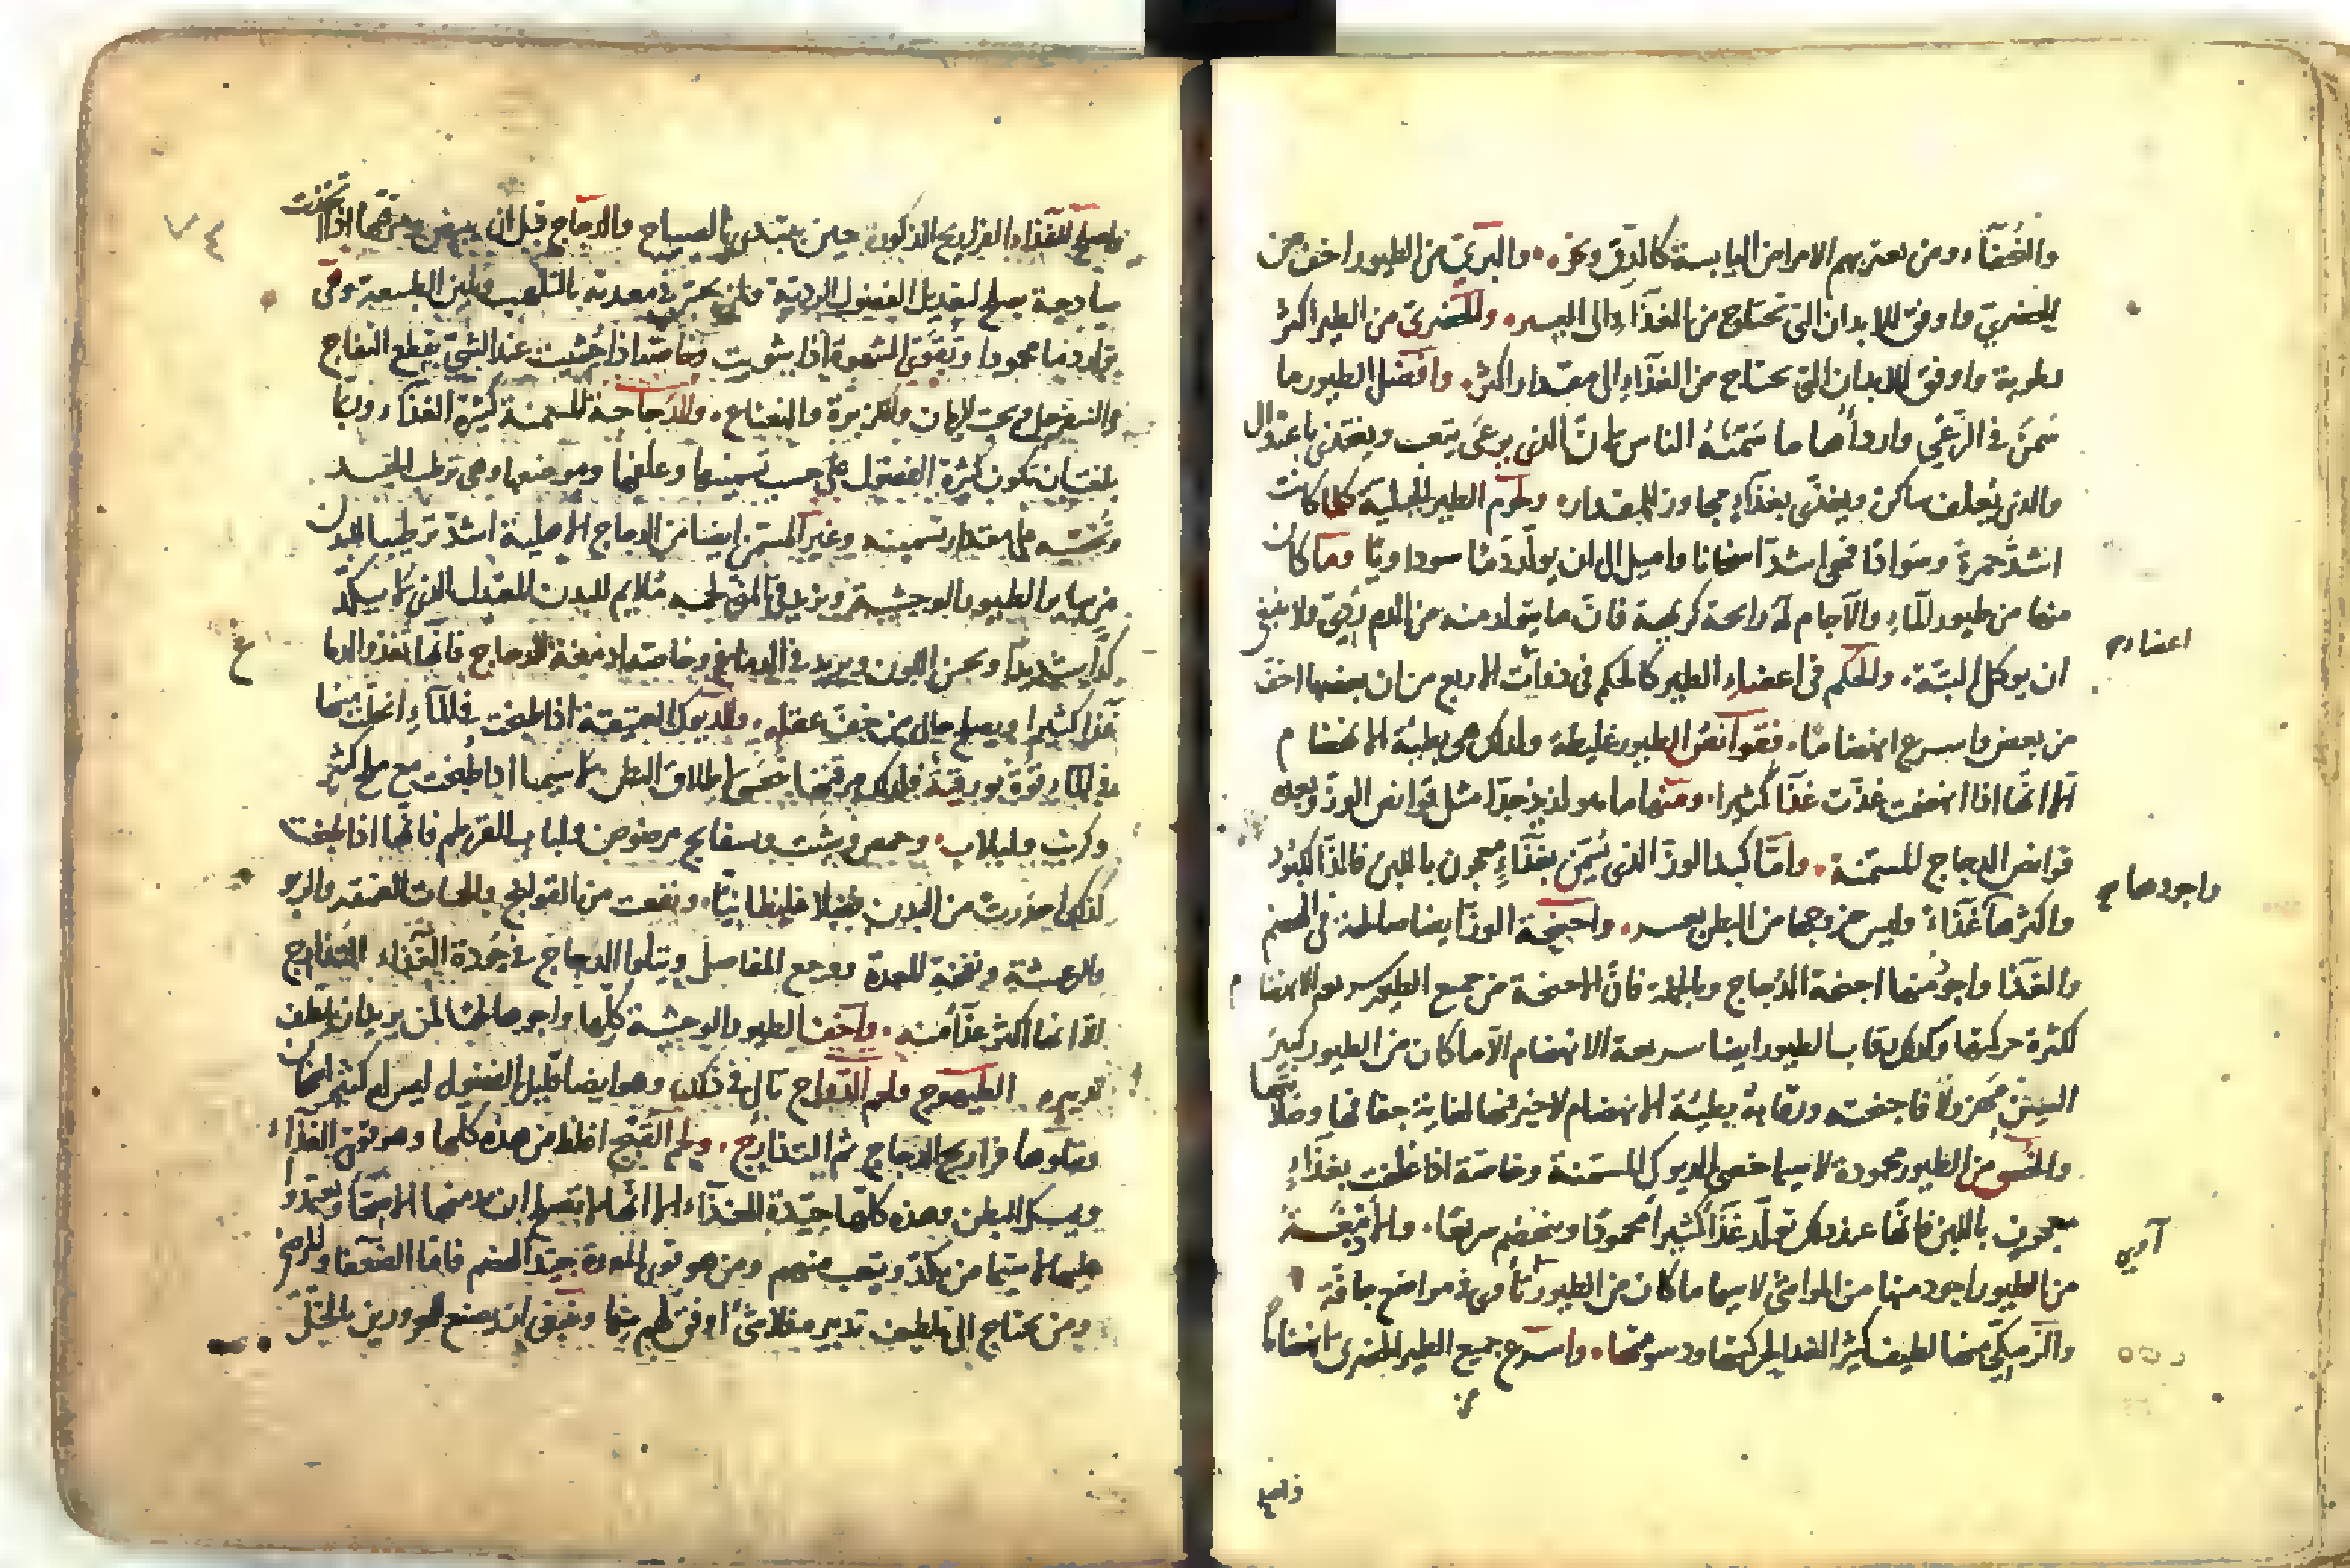 والضعفاء ومن تعتريهم الامراض اليابسة كالدق ونحوه والبري من الطيور اخف من
الحضري واوفق للابدان التي تحتاج من الغذاء الى اليسير والحضري من الطير اكثر
رطوبة واوفق للابدان التي تحتاج من الغذاء الى مقدار اكثر وافضل الطيور ما
سمن في الرعي واردأها ما سمنه الناس لان الذي يرعى يتعب ويغتذي باعتدال
والذي يعلف ساكن ويغذى بغذاء مجاوز المقدار ولحوم الطير الجبلية كلما كانت
اشد حمرة وسوادا فهي اشد اسخانا واميل الى ان يولد دما سوداويا وما كان
منها من طيور الماء والآجام له رايحة كريهة فان ما يتولد منه من الدم ردي ولا ينبغي
ان يوكل البتة والحكم في اعضاء الطير كالحكم في ذوات الاربع من ان بعضها اخف
من بعض واسرع انهضاما فقوانص الطيور غليظة ولذلك هي بطيئة الانهضام
الا انها اذا انهضمت غذت غذا كثيرا ومنها ما هو لذيذ جدا مثل قوانص الوز وبعده
قوانص الدجاج المسمنة واما كبد الوز الذي يسمن بغذاء معجون باللبن فالذ الكبود
واكثرها غذاء وليس خروجها من البطن بعسر واجنحة الوز ايضا صالحة في الهضم
والغذا واجود منها اجنحة الدجاج وبالجملة فان الاجنحة من جميع الطير سريعة الانهضام
لكثرة حركتها وكذلك رقاب الطيور ايضا سريعة الانهضام الا ما كان من الطيور كبير
السن مهزولا فاجنحته ورقابه بطيئة الانهضام لا خير فيها لغاية جفافها وصلابتها
والخصي من الطيور محمودة لا سيما خصي الديوك المسمنة وخاصة اذا علفت بغذاء
معجون باللبن فانها عند ذلك تولد غذا كثيرا محمودا وينهضم سريعا والادمغة
من الطيور اجود منها من المواشي لا سيما ما كان من الطيور تأوي في مواضع جافة
والزمكي منها لطيف كثير الغذا لحركتها ودسومتها واسرع جميع الطير الحضري انهضاما
اعضاؤه
واجودها
واصلح
٧٤
واصلح للغذاء الفراريج الذكورة حين يبتدي بالصياح والدجاج قبل ان يبيض ومرقتها اذا اتخذت
ساذجة يصلح لتعديل الفضول الردية ولمن يحس في معدته بالتلهب ويلين الطبيعة وهي
تولد دما محمودا وتقوي الشهوة اذا شويت وخاصة اذا حشيت عند الشي بقطع التفاح
والسفرجل وحب الرمان والكزبرة والنعناع والدجاجة المسمنة كثيرة الغذاء وربما
بلغت ان تكون كثيرة الفضول على حسب تسمينها وعلفها وموضعها وهي ترطب الجسد
وتسخنه على مقدار تسمينه وغير المسمن ايضا من الدجاج الاهلية اشد ترطيبا للبدن
من ساير الطيور الوحشية ويزيد في المني لحمه ملايم للبدن المعتدل الذي لا يكد
كدا شديدا ويحسن اللون ويزيد في الدماغ وخاصة ادمغة الدجاج فانها تغذو الدماغ
غذا كثيرا ويصلح حال من خف عقله والديوك العتيقة اذا طبخت في الماء انحلت منها
في الماء قوة بورقية فلذلك مرقتها تعين على اطلاق البطن لا سيما اذا طبخت مع ملح كثير
وكرنب ولبلاب وحمص وشبث وبسفايج مرضوض ولباب القرطم فانها اذا طبخت
كذلك احدرت من البدن ثفلا غليظا نيا ونفعت من القولنج والحميات العتيقة والربو
والرعشة ونفخة المعدة ووجع المفاصل ويتلوا الدجاج في جودة الغذاء التدارج
الا انها اكثر غذا منه واخف الطيور الوحشية كلها واجودها لحما لمن يريد ان يلطف
تدبيره الطيهوج ولحم الدراج تال في ذلك وهو ايضا قليل الفضول ليس له كثير اسخان
ويتلوها فراريج الدجاج ثم التدارج ولحم القبج اغلظ من هذه كلها وهو قوي الغذاء
ويمسك البطن وهذه كلها جيدة الغذاء الا انها لا يصلح ان يدمنها الاصحاء ويعتمدوا
عليها لا سيما من يكد ويتعب منهم ومن هو قوي المعدة جيد الهضم فاما الضعفا والمرضى
ومن يحتاج الى تلطيف تدبير فلا شي اوفق لهم منها وينبغي ان يصنع للمحرورين بالخل